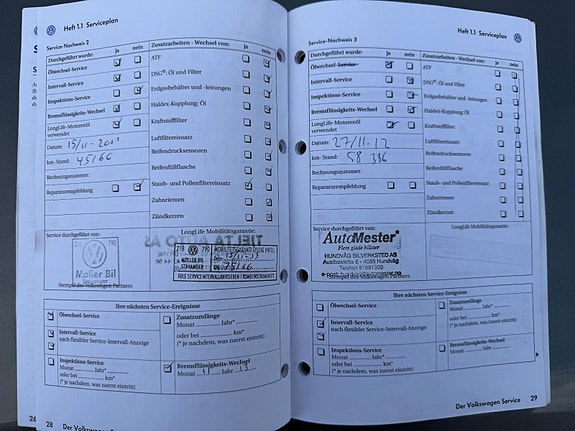 Heft 1.1 Serviceplan
Service-Nachweis 2
Durchgeführt wurde: ja nein
Ölwechsel-Service
Intervall-Service
Inspektions-Service
Bremsflüssigkeits-Wechsel
LongLife-Motorenöl
verwendet
Datum:
km-Stand: 45166
Rechnungsnummer:
Reparaturempfehlung
Zusatzarbeiten - Wechsel von: ja nein
ATF
DSG®: Öl und Filter
Erdgasbehälter und -leitungen
Haldex-Kupplung: Öl
Kraftstofffilter
Luftfiltereinsatz
Reifendrucksensoren
Reifenfüllflasche
Staub- und Pollenfiltereinsatz
Zahnriemen
Zündkerzen
Service durchgeführt von:
790
Møller Bil
Stempel des Volkswagen Partners
LongLife Mobilitätsgarantie:
790
MØLLER BIL
Ihre nächsten Service-Ereignisse
Ölwechsel-Service
Intervall-Service
nach flexibler Service-Intervall-Anzeige
Inspektions-Service
Monat Jahr*
oder bei km*
(* je nachdem, was zuerst eintritt)
Zusatzumfänge
Monat Jahr*
oder bei km*
(* je nachdem, was zuerst eintritt)
Bremsflüssigkeits-Wechsel
Monat 11 Jahr 13
26
28 Der Volkswagen Service
Heft 1.1 Serviceplan
Service-Nachweis 3
Durchgeführt wurde: ja nein
Ölwechsel-Service
Intervall-Service
Inspektions-Service
Bremsflüssigkeits-Wechsel
LongLife-Motorenöl
verwendet
Datum: 27/11.12
km-Stand: 58 386
Rechnungsnummer:
Reparaturempfehlung
Zusatzarbeiten - Wechsel von: ja nein
ATF
DSG®: Öl und Filter
Erdgasbehälter und -leitungen
Haldex-Kupplung: Öl
Kraftstofffilter
Luftfiltereinsatz
Reifendrucksensoren
Reifenfüllflasche
Staub- und Pollenfiltereinsatz
Zahnriemen
Zündkerzen
Service durchgeführt von:
AutoMester
Flere glade bilister
HUNDVÅG BILVERKSTED AS
4085 Hundvåg
Telefon 51861300
Stempel des Volkswagen Partners
LongLife Mobilitätsgarantie:
Ihre nächsten Service-Ereignisse
Ölwechsel-Service
Intervall-Service
nach flexibler Service-Intervall-Anzeige
Inspektions-Service
Monat Jahr*
oder bei km*
(* je nachdem, was zuerst eintritt)
Zusatzumfänge
Monat Jahr*
oder bei km*
(* je nachdem, was zuerst eintritt)
Bremsflüssigkeits-Wechsel
Monat Jahr
Der Volkswagen Service 29